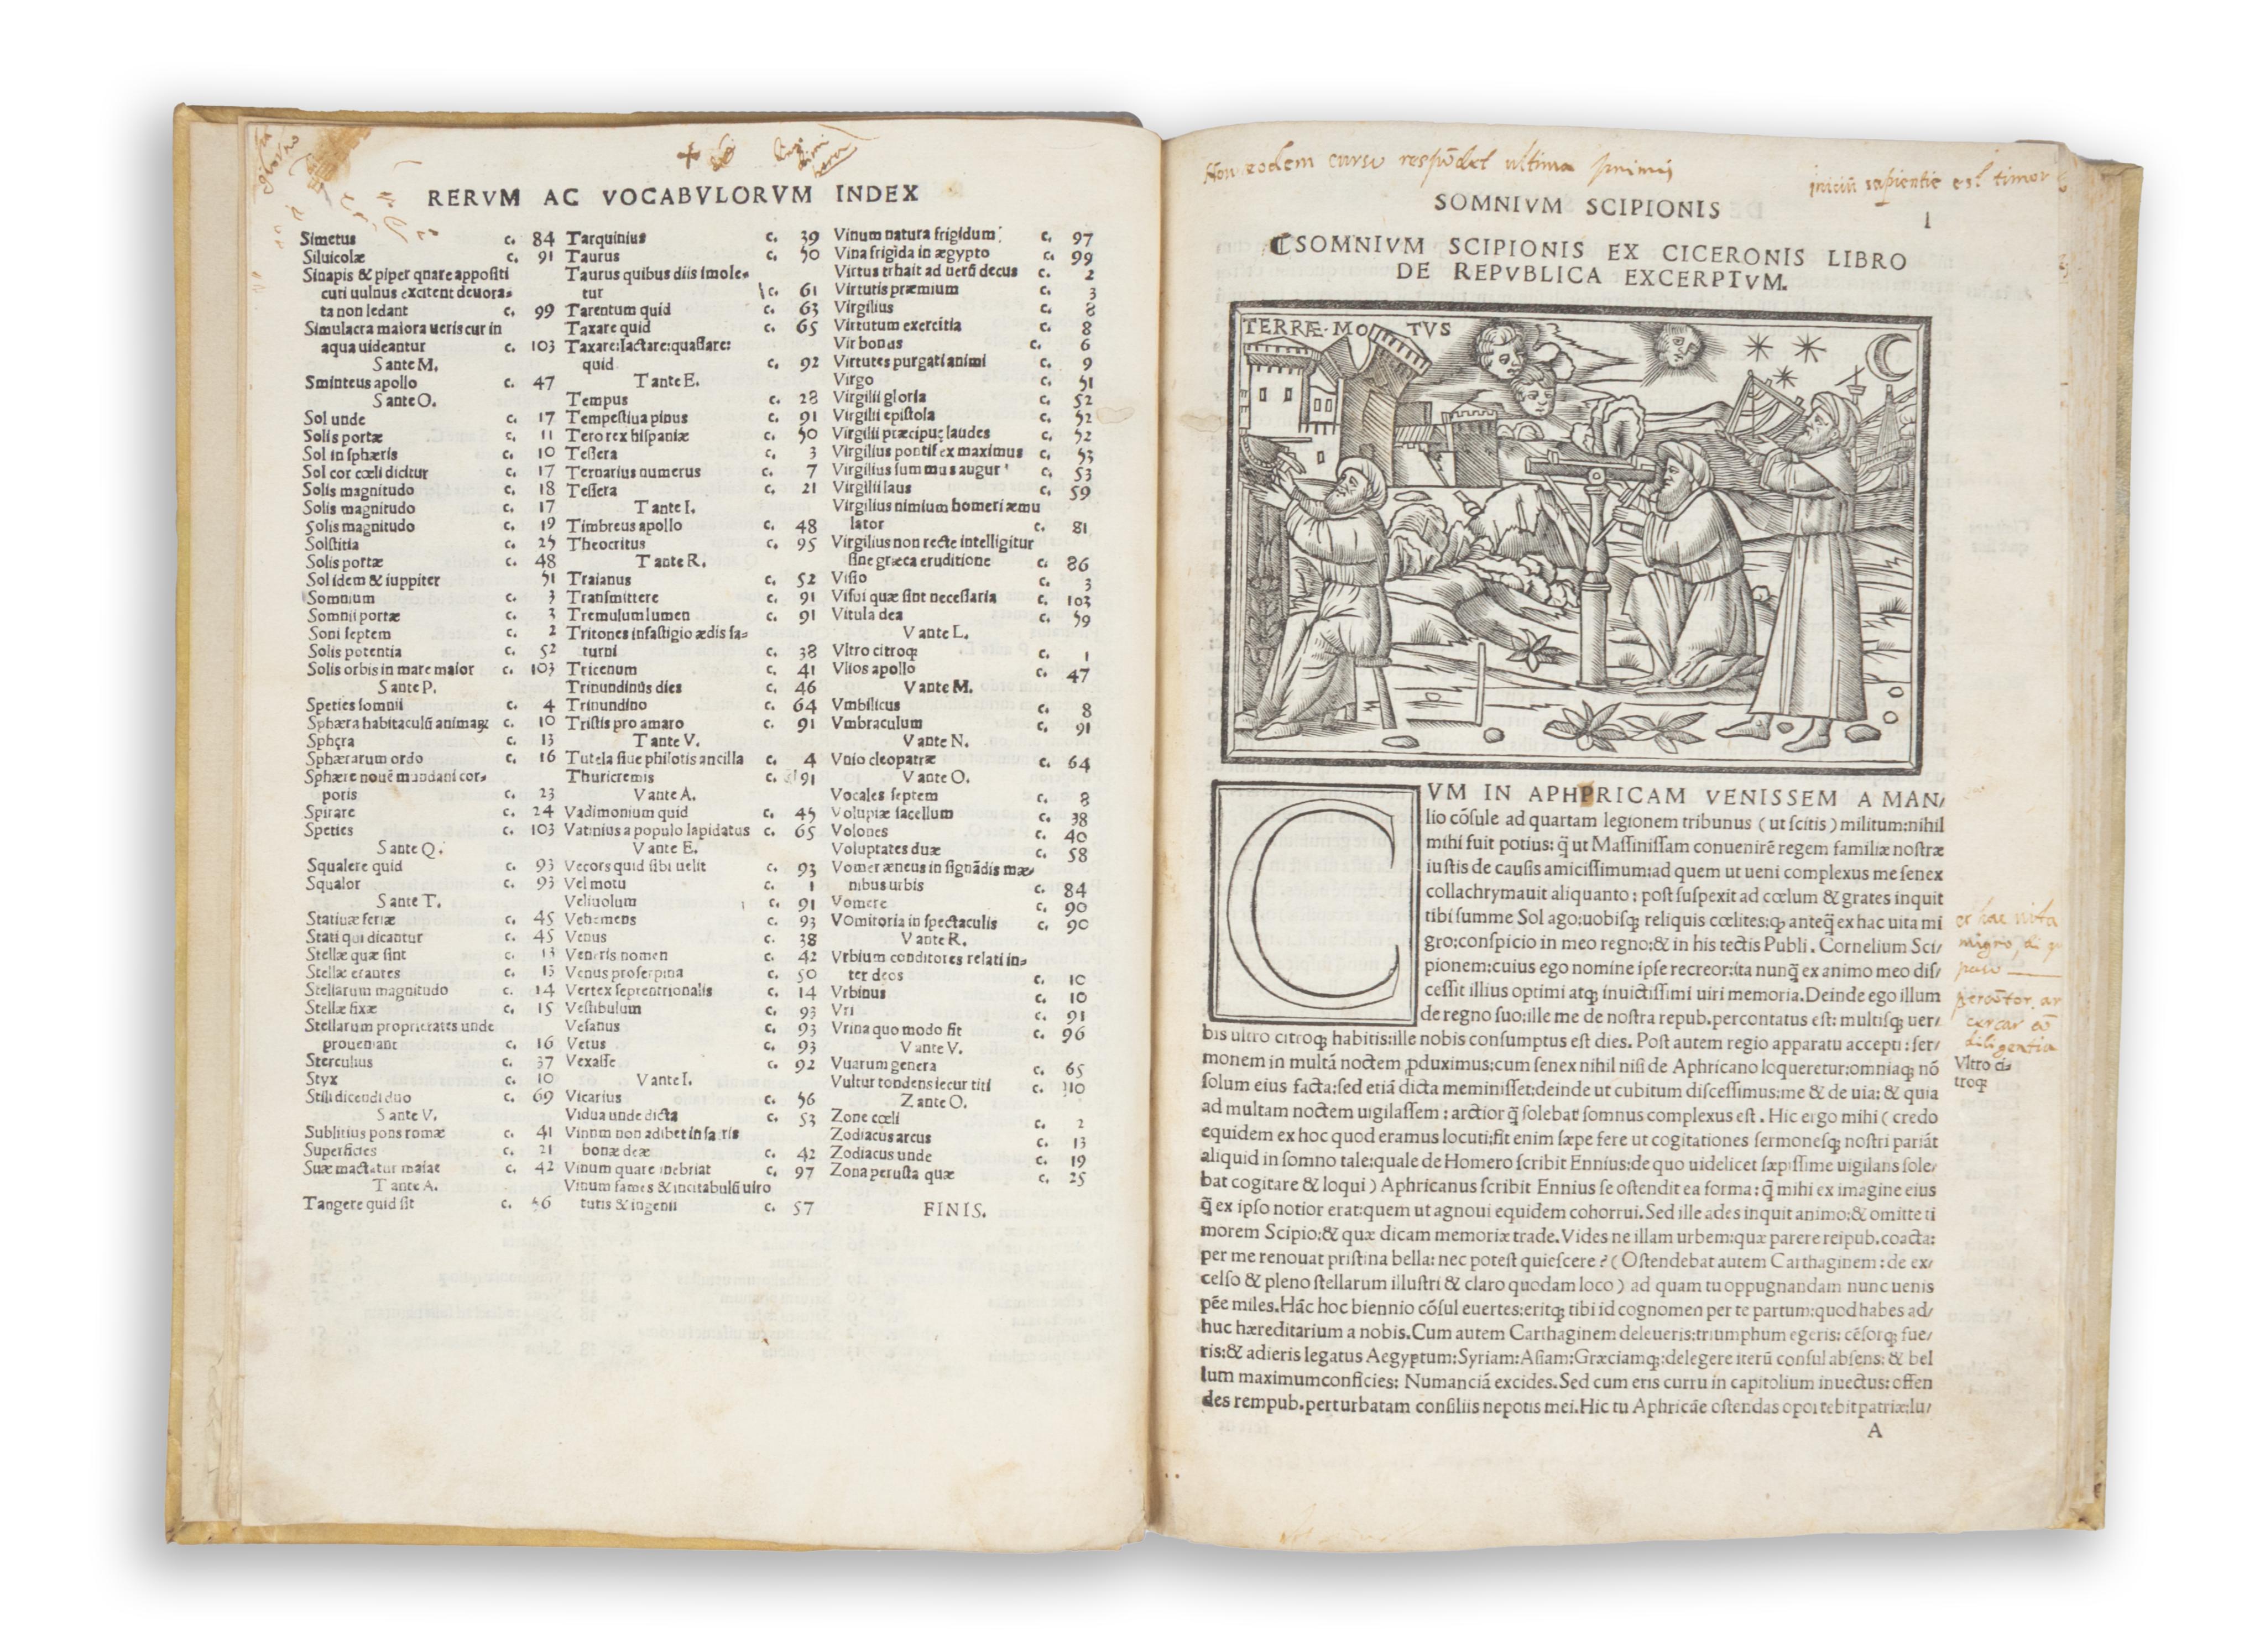 RERVM AC VOCABVLORVM INDEX
Simetus c. 84
Siluicolæ c. 91
Sinapis & piper quare appositi
cuti uulnus excitent deuora-
ta non ledant c. 99
Simulacra maiora ueris cur in
aqua uideantur c. 103
S ante M.
Sminteus apollo c. 47
S ante O.
Sol unde c. 17
Solis portæ c. 11
Sol in sphæris c. 10
Sol cor cœli dicitur c. 17
Solis magnitudo c. 18
Solis magnitudo c. 17
Solis magnitudo c. 19
Solstitia c. 25
Solis portæ c. 48
Sol idem & iuppiter 51
Somnium c. 3
Somnii portæ c. 3
Soni septem c. 2
Solis potentia c. 52
Solis orbis in mare maior c. 103
S ante P.
Speties somnii c. 4
Sphæra habitaculū animaꝝ c. 10
Sphęra c. 13
Sphærarum ordo c. 16
Sphære nouē mundani cor-
poris c. 23
Spirare c. 24
Speties c. 103
S ante Q.
Squalere quid c. 93
Squalor c. 93
S ante T.
Statiuæ feriæ c. 45
Stati qui dicantur c. 45
Stellæ quæ sint c. 13
Stellæ erantes c. 13
Stellarum magnitudo c. 14
Stellæ fixæ c. 15
Stellarum proprietates unde
proueniant c. 16
Sterculius c. 37
Styx c. 10
Stili dicendi duo c. 69
S ante V.
Sublitius pons romæ c. 41
Superficies c. 21
Suæ mactatur maiae c. 42
T ante A.
Tangere quid sit c. 56
Tarquinius c. 39
Taurus c. 50
Taurus quibus diis imole-
tur c. 61
Tarentum quid c. 63
Taxare quid c. 65
Taxare:Iactare:quassare:
quid c. 92
T ante E.
Tempus c. 28
Tempestiua pinus c. 91
Tero rex hispaniæ c. 50
Tessera c. 3
Ternarius numerus c. 7
Tessera c. 21
T ante I.
Timbreus apollo c. 48
Theocritus c. 95
T ante R.
Traianus c. 52
Transmittere c. 91
Tremulum lumen c. 91
Tritones in fastigio ædis sa-
turni c. 38
Tricenum c. 41
Trinundinus dies c. 46
Trinundino c. 64
Tristis pro amaro c. 91
T ante V.
Tutela siue philotis ancilla c. 4
Thuricremis c. 91
V ante A.
Vadimonium quid c. 45
Vatinius a populo lapidatus c. 65
V ante E.
Vecors quid sibi uelit c. 93
Vel motu c. 1
Veliuolum c. 91
Vehemens c. 93
Venus c. 38
Veneris nomen c. 42
Venus proserpina c. 50
Vertex septentrionalis c. 14
Vestibulum c. 93
Vesanus c. 93
Vetus c. 93
Vexasse c. 92
V ante I.
Vicarius c. 56
Vidua unde dicta c. 53
Vinum non adibet in sacris
bonæ deæ c. 42
Vinum quare inebriat c. 97
Vinum fames & incitabulū uiro
tutis & ingenii c. 57
Vinum natura frigidum c. 97
Vina frigida in ægypto c. 99
Virtus trhait ad uerū decus c. 2
Virtutis præmium c. 3
Virgilius c. 8
Virtutum exercitia c. 8
Vir bonus c. 6
Virtutes purgati animi c. 9
Virgo c. 51
Virgilii gloria c. 52
Virgilii epistola c. 52
Virgilii præcipuę laudes c. 52
Virgilius pontifex maximus c. 53
Virgilius summus augur c. 53
Virgilii laus c. 59
Virgilius nimium homeri æmu
lator c. 81
Virgilius non recte intelligitur
sine græca eruditione c. 86
Visio c. 3
Visui quæ sint necessaria c. 103
Vitula dea c. 59
V ante L.
Vltro citroq; c. 1
Vlios apollo c. 47
V ante M.
Vmbilicus c. 8
Vmbraculum c. 91
V ante N.
Vnio cleopatræ c. 64
V ante O.
Vocales septem c. 8
Volupiæ sacellum c. 38
Volones c. 40
Voluptates duæ c. 58
Vomer æneus in signādis mœ-
nibus urbis c. 84
Vomere c. 90
VOmitoria in spectaculis c. 90
V ante R.
Vrbium conditores relati in-
ter deos c. 10
Vrbinus c. 10
Vri c. 91
Vrina quo modo fit c. 96
V ante V.
Vuarum genera c. 65
Vultur tondens iecur titi c. 10
Z ante O.
Zone cœli c. 2
Zodiacus arcus c. 13
Zodiacus unde c. 19
Zona perusta quæ c. 25
FINIS.
Non eodem cursu respōdet ultima primis
iniciū sapientie est timor
SOMNIVM SCIPIONIS
1
SOMNIVM SCIPIONIS EX CICERONIS LIBRO
DE REPVBLICA EXCERPTVM.
TERRÆ·MOTVS
CVM IN APHPRICAM VENISSEM A MAN/
lio cōsule ad quartam legionem tribunus (ut scitis) militum:nihil
mihi fuit potius: q̄ ut Massinissam conuenirē regem familiæ nostræ
iustis de causis amicissimum:ad quem ut ueni complexus me senex
collachrymauit aliquanto: post suspexit ad cœlum & grates inquit
tibi summe Sol ago:uobisq; reliquis cœlites:ꝙ anteq̄ ex hac uita mi
gro:conspicio in meo regno:& in his tectis Publi. Cornelium Sci/
pionem:cuius ego nomine ipse recreor:ita nunq̄ ex animo meo dis/
cessit illius optimi atq; inuictissimi uiri memoria.Deinde ego illum
de regno suo:ille me de nostra repub.percontatus est: multisq; uer/
bis ultro citroq; habitis:ille nobis consumptus est dies. Post autem regio apparatu accepti: ser/
monem in multā noctem ꝓduximus:cum senex nihil nisi de Aphricano loqueretur:omniaq; nō
solum eius facta:sed etiā dicta meminisset:deinde ut cubitum discessimus:me & de uia: & quia
ad multam noctem uigilassem: arctior q̄ solebat somnus complexus est. Hic ergo mihi (credo
equidem ex hoc quod eramus locuti:fit enim sæpe fere ut cogitationes sermonesq; nostri pariāt
aliquid in somno tale:quale de Homero scribit Ennius:de quo uidelicet sæpissime uigilans sole/
bat cogitare & loqui) Aphricanus scribit Ennius se ostendit ea forma: q̄ mihi ex imagine eius
q̄ ex ipso notior erat:quem ut agnoui equidem cohorrui.Sed ille ades inquit animo:& omitte ti
morem Scipio:& quæ dicam memoriæ trade.Vides ne illam urbem:quæ parere reipub.coacta:
per me renouat pristina bella: nec potest quiescere?(Ostendebat autem Carthaginem: de ex/
celso & pleno stellarum illustri & claro quodam loco) ad quam tu oppugnandam nunc uenis
pēe miles.Hāc hoc biennio cōsul euertes:eritq; tibi id cognomen per te partum:quod habes ad/
huc hæreditarium a nobis.Cum autem Carthaginem deleueris:triumphum egeris: cēsorq; fue/
ris:& adieris legatus Aegyptum:Syriam:Asiam:Græciamq;:delegere iterū consul absens: & bel
lum maximumconficies: Numanciā excides.Sed cum eris curru in capitolium inuectus: offen
des rempub.perturbatam consiliis nepotis mei.Hic tu Aphricāe ostendas oportebit patriæ:lu/
A
ex hac uita
migro
diligentia
Vltro ci-
troq;